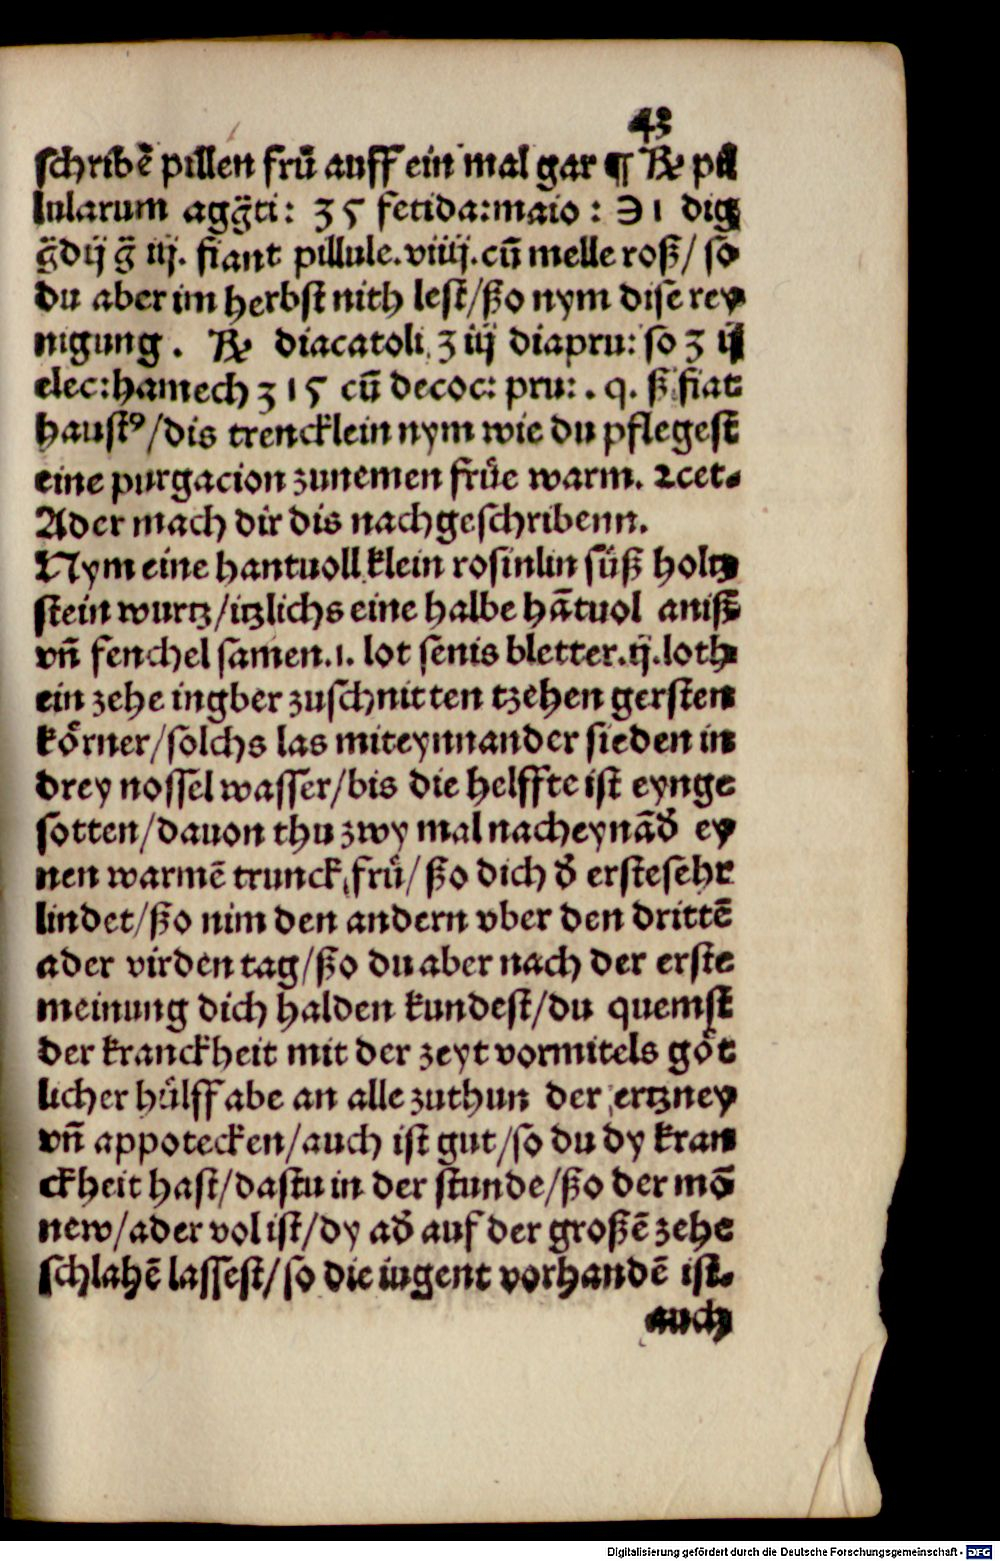 43
schribē pillen frů auff ein mal gar ¶ ℞ pil
lularum agg̃ti: ʒ 5 fetida:maio : ℈ 1 dig
g̃dij g̃ iij. fiant pillule.viiij.cū melle roß/ so
du aber im herbst nith lest/ßo nym dise rey
nigung . ℞ diacatoli ʒ iij diapru: so ʒ ij
elec:hamech ʒ 1 5 cū decoc: pru: . q. ß fiat
haustꝰ/dis trencklein nym wie du pflegest
eine purgacion zunemen frůe warm. ꝛcet.
Ader mach dir dis nachgeschribenn.
Nym eine hantuoll klein rosinlin süß holtz
stein wurtz/itzlichs eine halbe hātuol aniß
vñ fenchel samen.1. lot senis bletter.ij.loth
ein zehe ingber zuschnitten tzehen gersten
körner/solchs las miteynnander sieden in
drey nossel wasser/bis die helffte ist eynge
sotten/dauon thu zwy mal nacheynād̕ ey
nen warmē trunck frů/ ßo dich d̕ erstesehr
lindet/ßo nim den andern vber den drittē
ader virden tag/ßo du aber nach der erste
meinung dich halden kundest/du quemst
der kranckheit mit der zeyt vormitels göt
licher hülff abe an alle zuthun der ertzney
vñ appotecken/auch ist gut/so du dy kran
ckheit hast/dastu in der stunde/ßo der mō
new/ader vol ist/dy ad̕ auf der großē zehe
schlahē lassest/so die iugent vorhandē ist.
auch
Digitalisierung gefördert durch die Deutsche Forschungsgemeinschaft - DFG